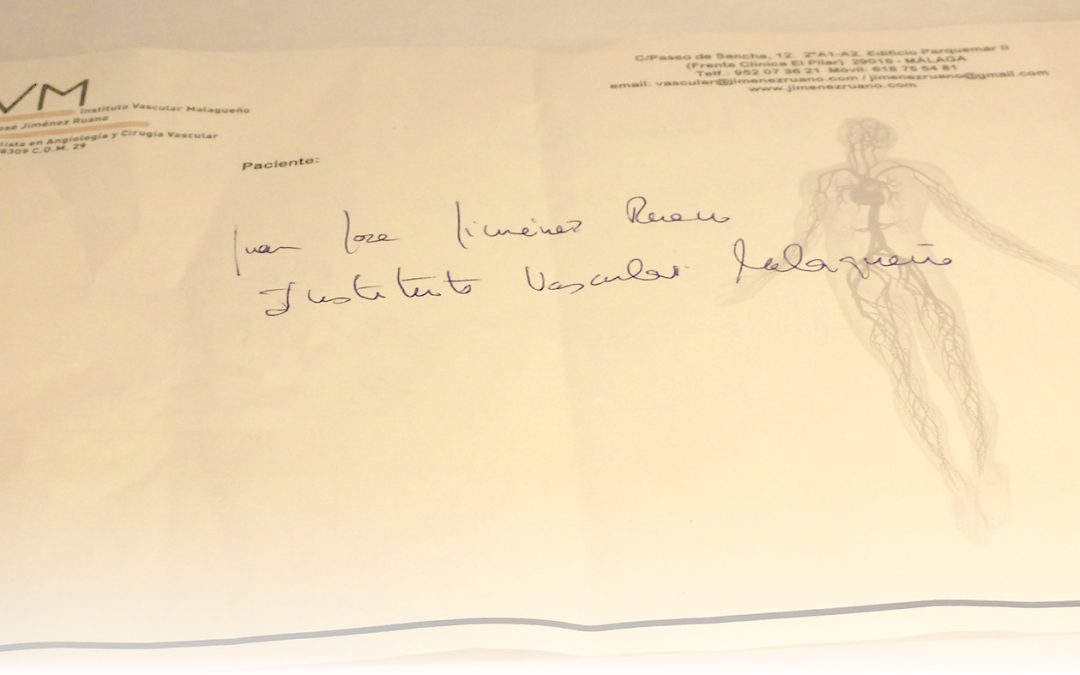 VM
Instituto Vascular Malagueño
José Jiménez Ruano
lista en Angiología y Cirugía Vascular
8309 C.O.M. 29
C/Paseo de Sancha, 12. 2ºA1-A2. Edificio Parquemar II
(Frente Clínica El Pilar) 29016 - MÁLAGA
Telf.: 952 07 36 21 Móvil: 618 75 54 81
email: vascular@jimenezruano.com / jimenezruano@gmail.com
www.jimenezruano.com
Paciente:
Juan Jose Jiménez Ruano
Instituto Vascular Malagueño